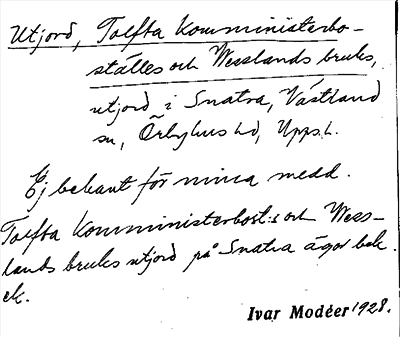 Utjord, Tolfta Komministerbo-
ställes och Wesslands bruks,
utjord i Snatra, Västland
sn, Örbyhus hd, Upps. l.
Ej bekant för mina medd.
Tolfta Komministerbost:s och Wess-
lands bruks utjord på Snatra ägor bek.
ek.
Ivar Modéer 1928.